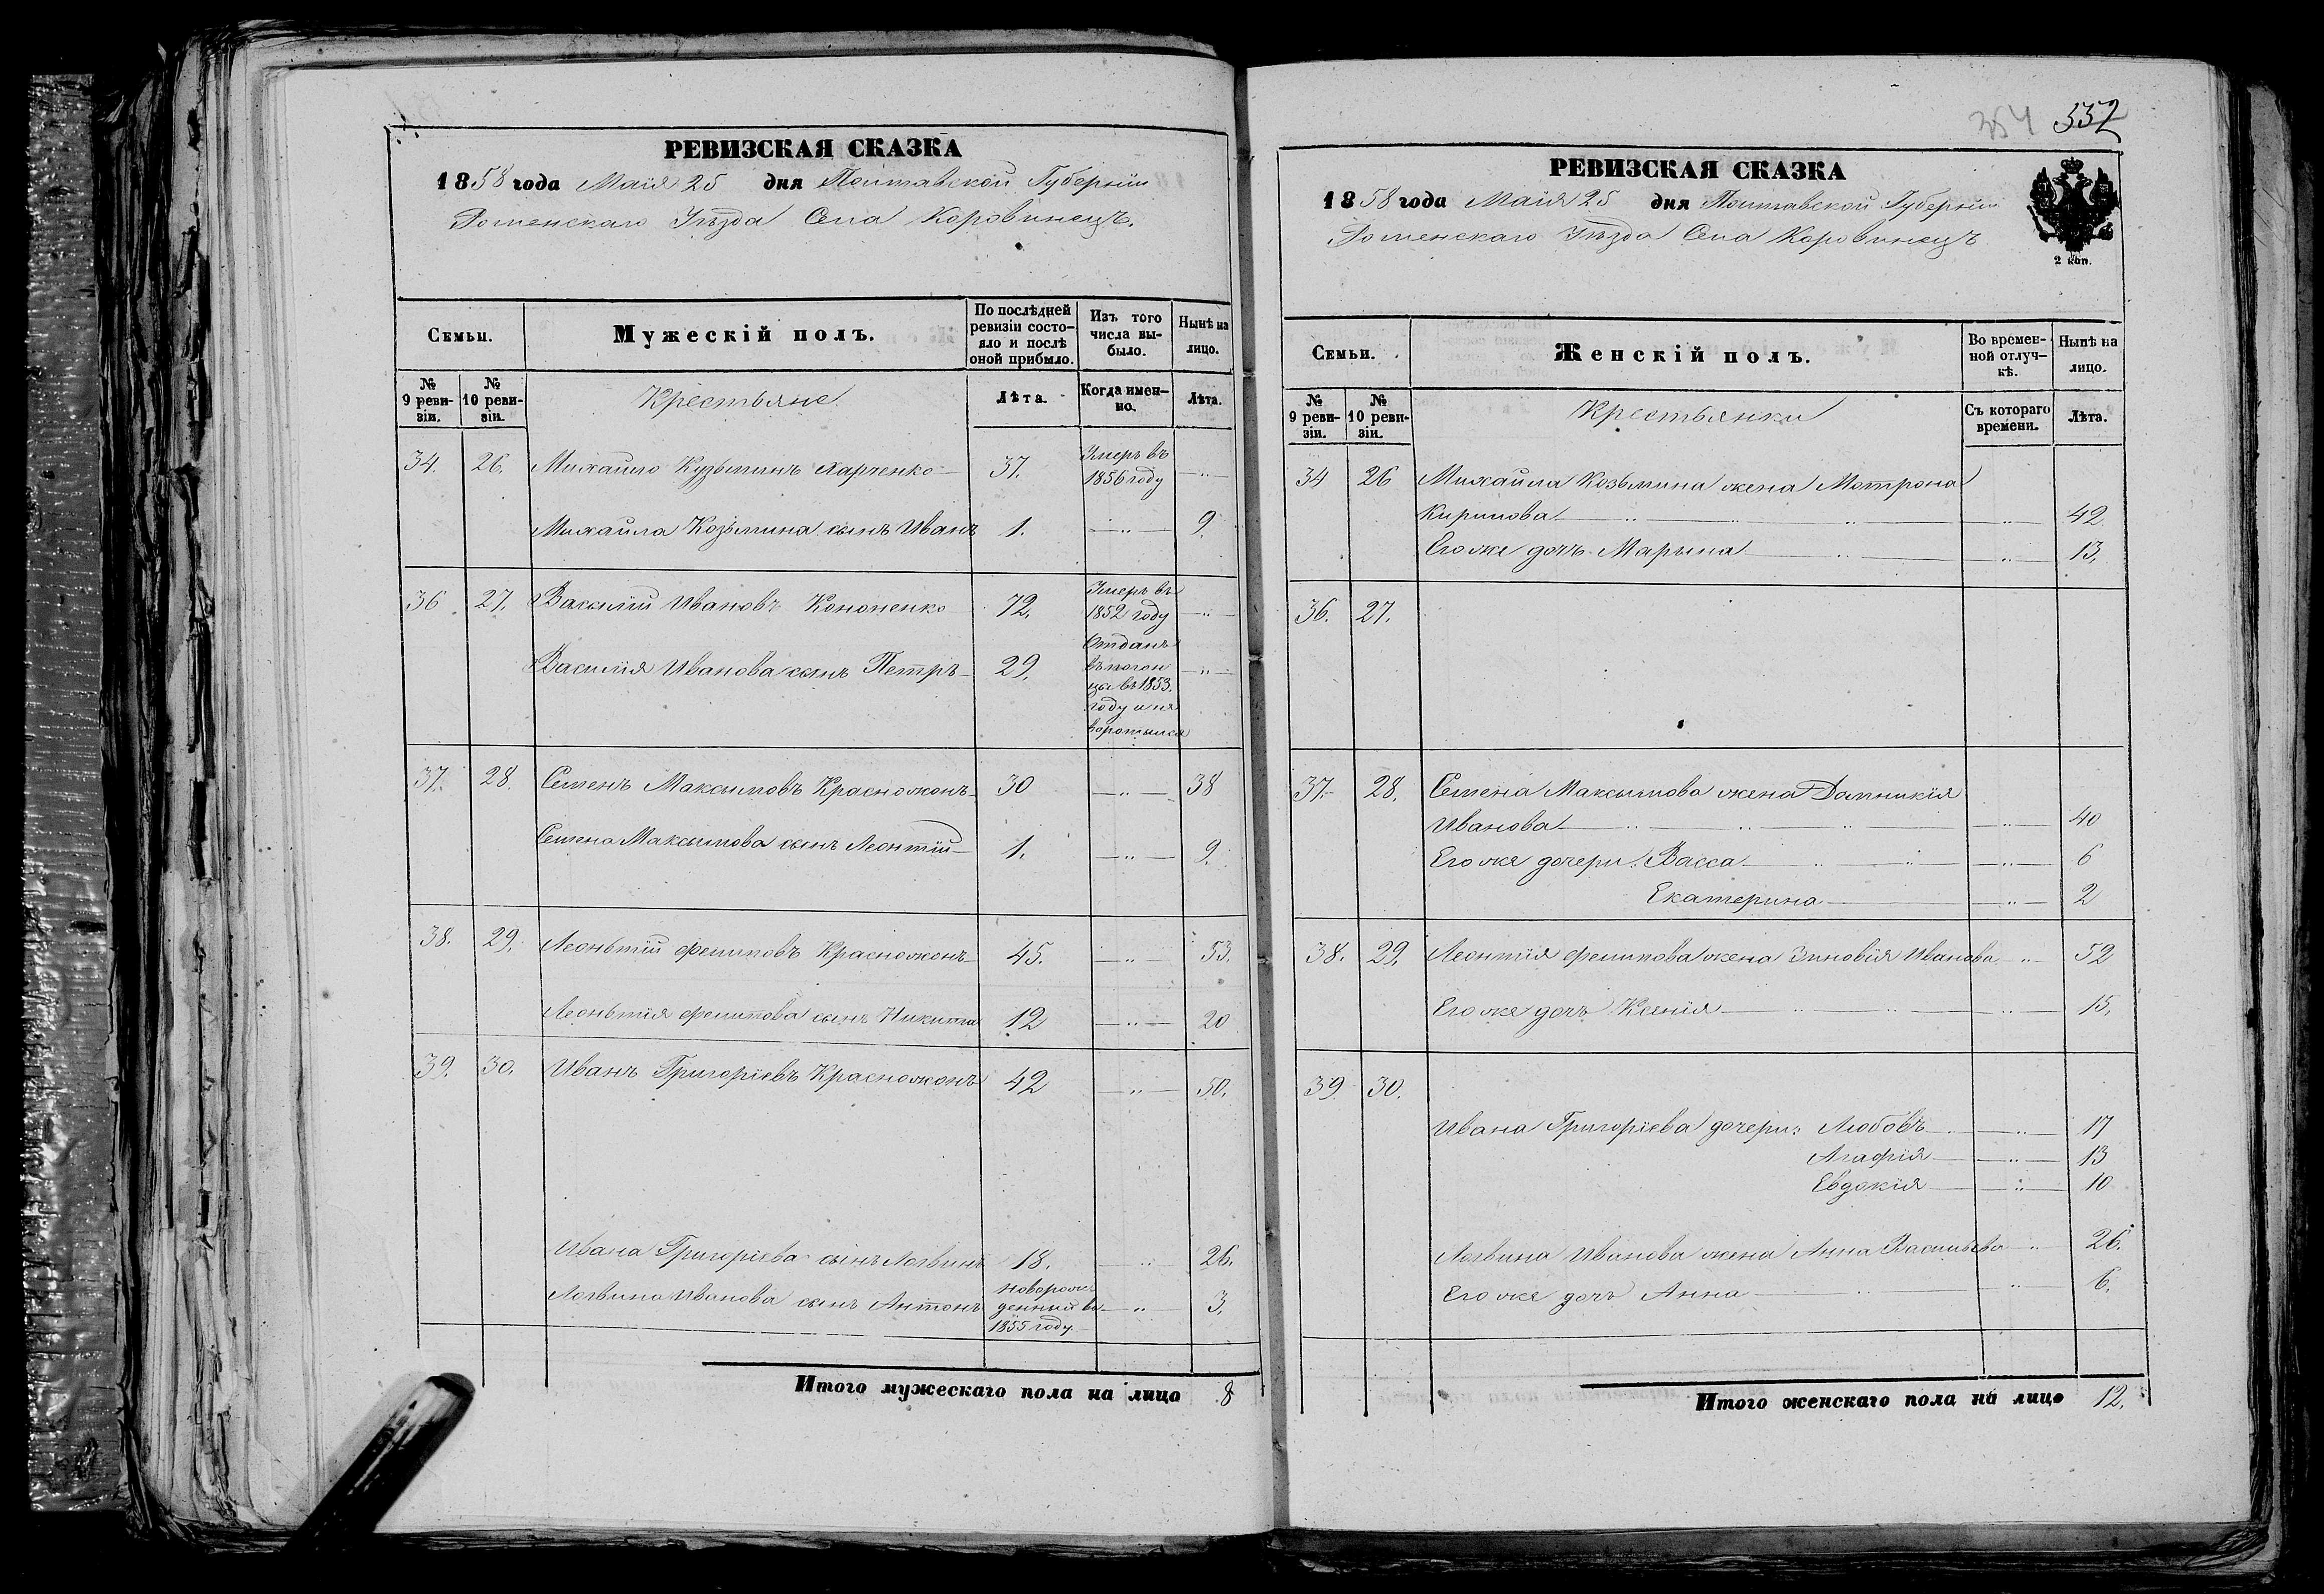 РЕВИЗСКАЯ СКАЗКА
1858 года Маія 25 дня Полтавской Губерніи
Роменскаго Уѣзда Села Коровинецъ.
Семьи.
Мужескій полъ.
По послѣдней ревизіи состояло и послѣ оной прибыло.
Изъ того числа выбыло.
Нынѣ на лицо.
№ 9 ревизіи.
№ 10 ревизіи.
Крестьяне
Лѣта.
Когда именно.
Лѣта.
34. 26. Михайло Кузьминъ Харченко 37. Умеръ въ 1856 году — " —
Михайла Козьмина сынъ Иванъ 1. — " — 9.
36 27. Василій Ивановъ Кононенко 72. Умеръ въ 1852 году — " —
Василія Иванова сынъ Петръ 29. Отданъ въ погонцы въ 1853. году и не воротился — " —
37. 28. Семенъ Максимовъ Красножонъ 30 — " — 38
Семена Максимова сынъ Леонтій 1. — " — 9.
38. 29. Леоньтій Филиповъ Красножонъ 45. — " — 53.
Леоньтія Филипова сынъ Никита 12 — " — 20
39. 30. Иванъ Григоріевъ Красножонъ 42 — " — 50.
Ивана Григоріева сынъ Логвинъ 18. — " — 26.
Логвина Иванова сынъ Антонъ новорожденный въ 1855 году. — " — 3.
Итого мужескаго пола на лицо 8
354 332
РЕВИЗСКАЯ СКАЗКА
1858 года Маія 25 дня Полтавской Губерніи
Роменскаго Уѣзда Села Коровинецъ
2 коп.
Семьи.
Женскій полъ.
Во временной отлучкѣ.
Нынѣ на лицо.
№ 9 ревизіи.
№ 10 ревизіи.
Крестьянки
Съ котораго времени.
Лѣта.
34 26 Михайла Козьмина жена Мотрона
Кирилова — " — 42
Его же дочь Марына — " — 13.
36. 27.
37. 28. Семена Максимова жена Домникія
Иванова — " — 40
Его же дочери: Васса — " — 6
Екатерина — " — 2
38. 29. Леонтія Филипова жена Зиновія Иванова " — 52
Его же дочь Ксенія — " — 15.
39 30.
Ивана Григоріева дочери: Любовь — " — 17
Агафія — " — 13
Евдокія — " — 10
Логвина Иванова жена Анна Васильева " 26.
Его же дочь Анна — " — 6.
Итого женскаго пола на лицо 12.